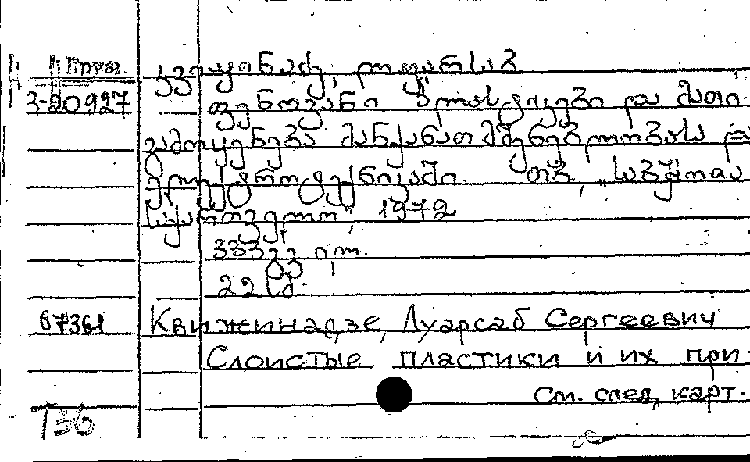 Груз.
კვიჟინაძე, ლუარსაბ
3-20927
ფენოვანი პლასტიკები და მათი
გამოყენება მანქანათმშენებლობასა და
ელექტროტექნიკაში. თბ., "საბჭოთა
საქართველო", 1972
22
67361 Квижинадзе, Луарсаб Сергеевич
Слоистые пластики и их при-
См. след. карт.
T36